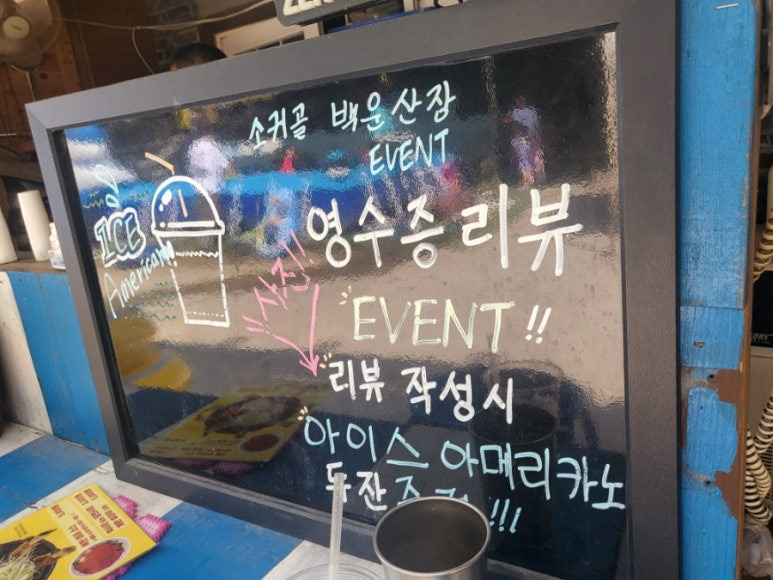 소귀골 백운산장
EVENT
ICE
Americano
영수증 리뷰
사진!!
EVENT!!
리뷰 작성시
아이스 아메리카노